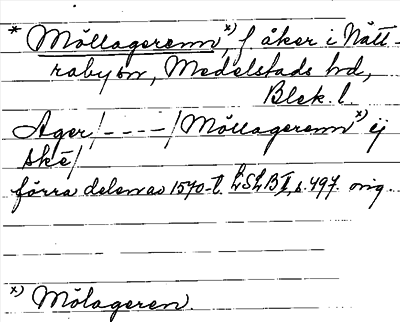 * Möllagerenn x), f åker i Nätt-
rabyån, Medelstads hd,
Blek. l.
Ager / - - - - / Möllagerenn x) ej
ské /
förra delen av 1570-t. LSLB I, s. 497. orig.
x) Mölageren.